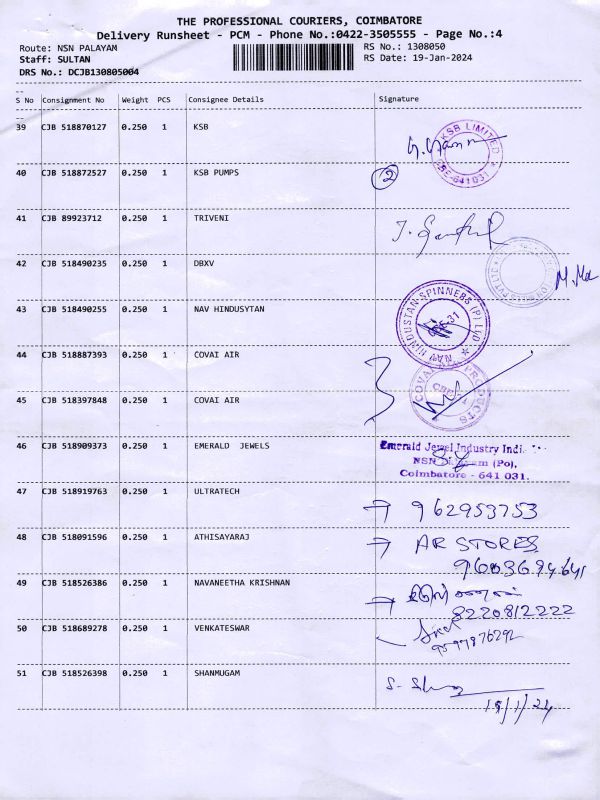 THE PROFESSIONAL COURIERS, COIMBATORE
Delivery Runsheet - PCM - Phone No.:0422-3505555 - Page No.:4
Route: NSN PALAYAM RS No.: 1308050
Staff: SULTAN RS Date: 19-Jan-2024
DRS No.: DCJB130805004
S No Consignment No Weight PCS Consignee Details Signature
39 CJB 518870127 0.250 1 KSB
KSB LIMITED
CBE-641031
40 CJB 518872527 0.250 1 KSB PUMPS 2
41 CJB 89923712 0.250 1 TRIVENI
42 CJB 518490235 0.250 1 DBXV
43 CJB 518490255 0.250 1 NAV HINDUSYTAN
NAV HINDUSTAN SPINNERS (P) LTD
44 CJB 518887393 0.250 1 COVAI AIR
45 CJB 518397848 0.250 1 COVAI AIR
COVAI PRODUCTS
46 CJB 518909373 0.250 1 EMERALD JEWELS
Emerald Jewel Industry Indi
NSN (Po),
Coimbatore - 641 031.
47 CJB 518919763 0.250 1 ULTRATECH → 962953753
48 CJB 518091596 0.250 1 ATHISAYARAJ → AR STORES
49 CJB 518526386 0.250 1 NAVANEETHA KRISHNAN →
8220812222
50 CJB 518689278 0.250 1 VENKATESWAR
9597876292
51 CJB 518526398 0.250 1 SHANMUGAM
19/1/24